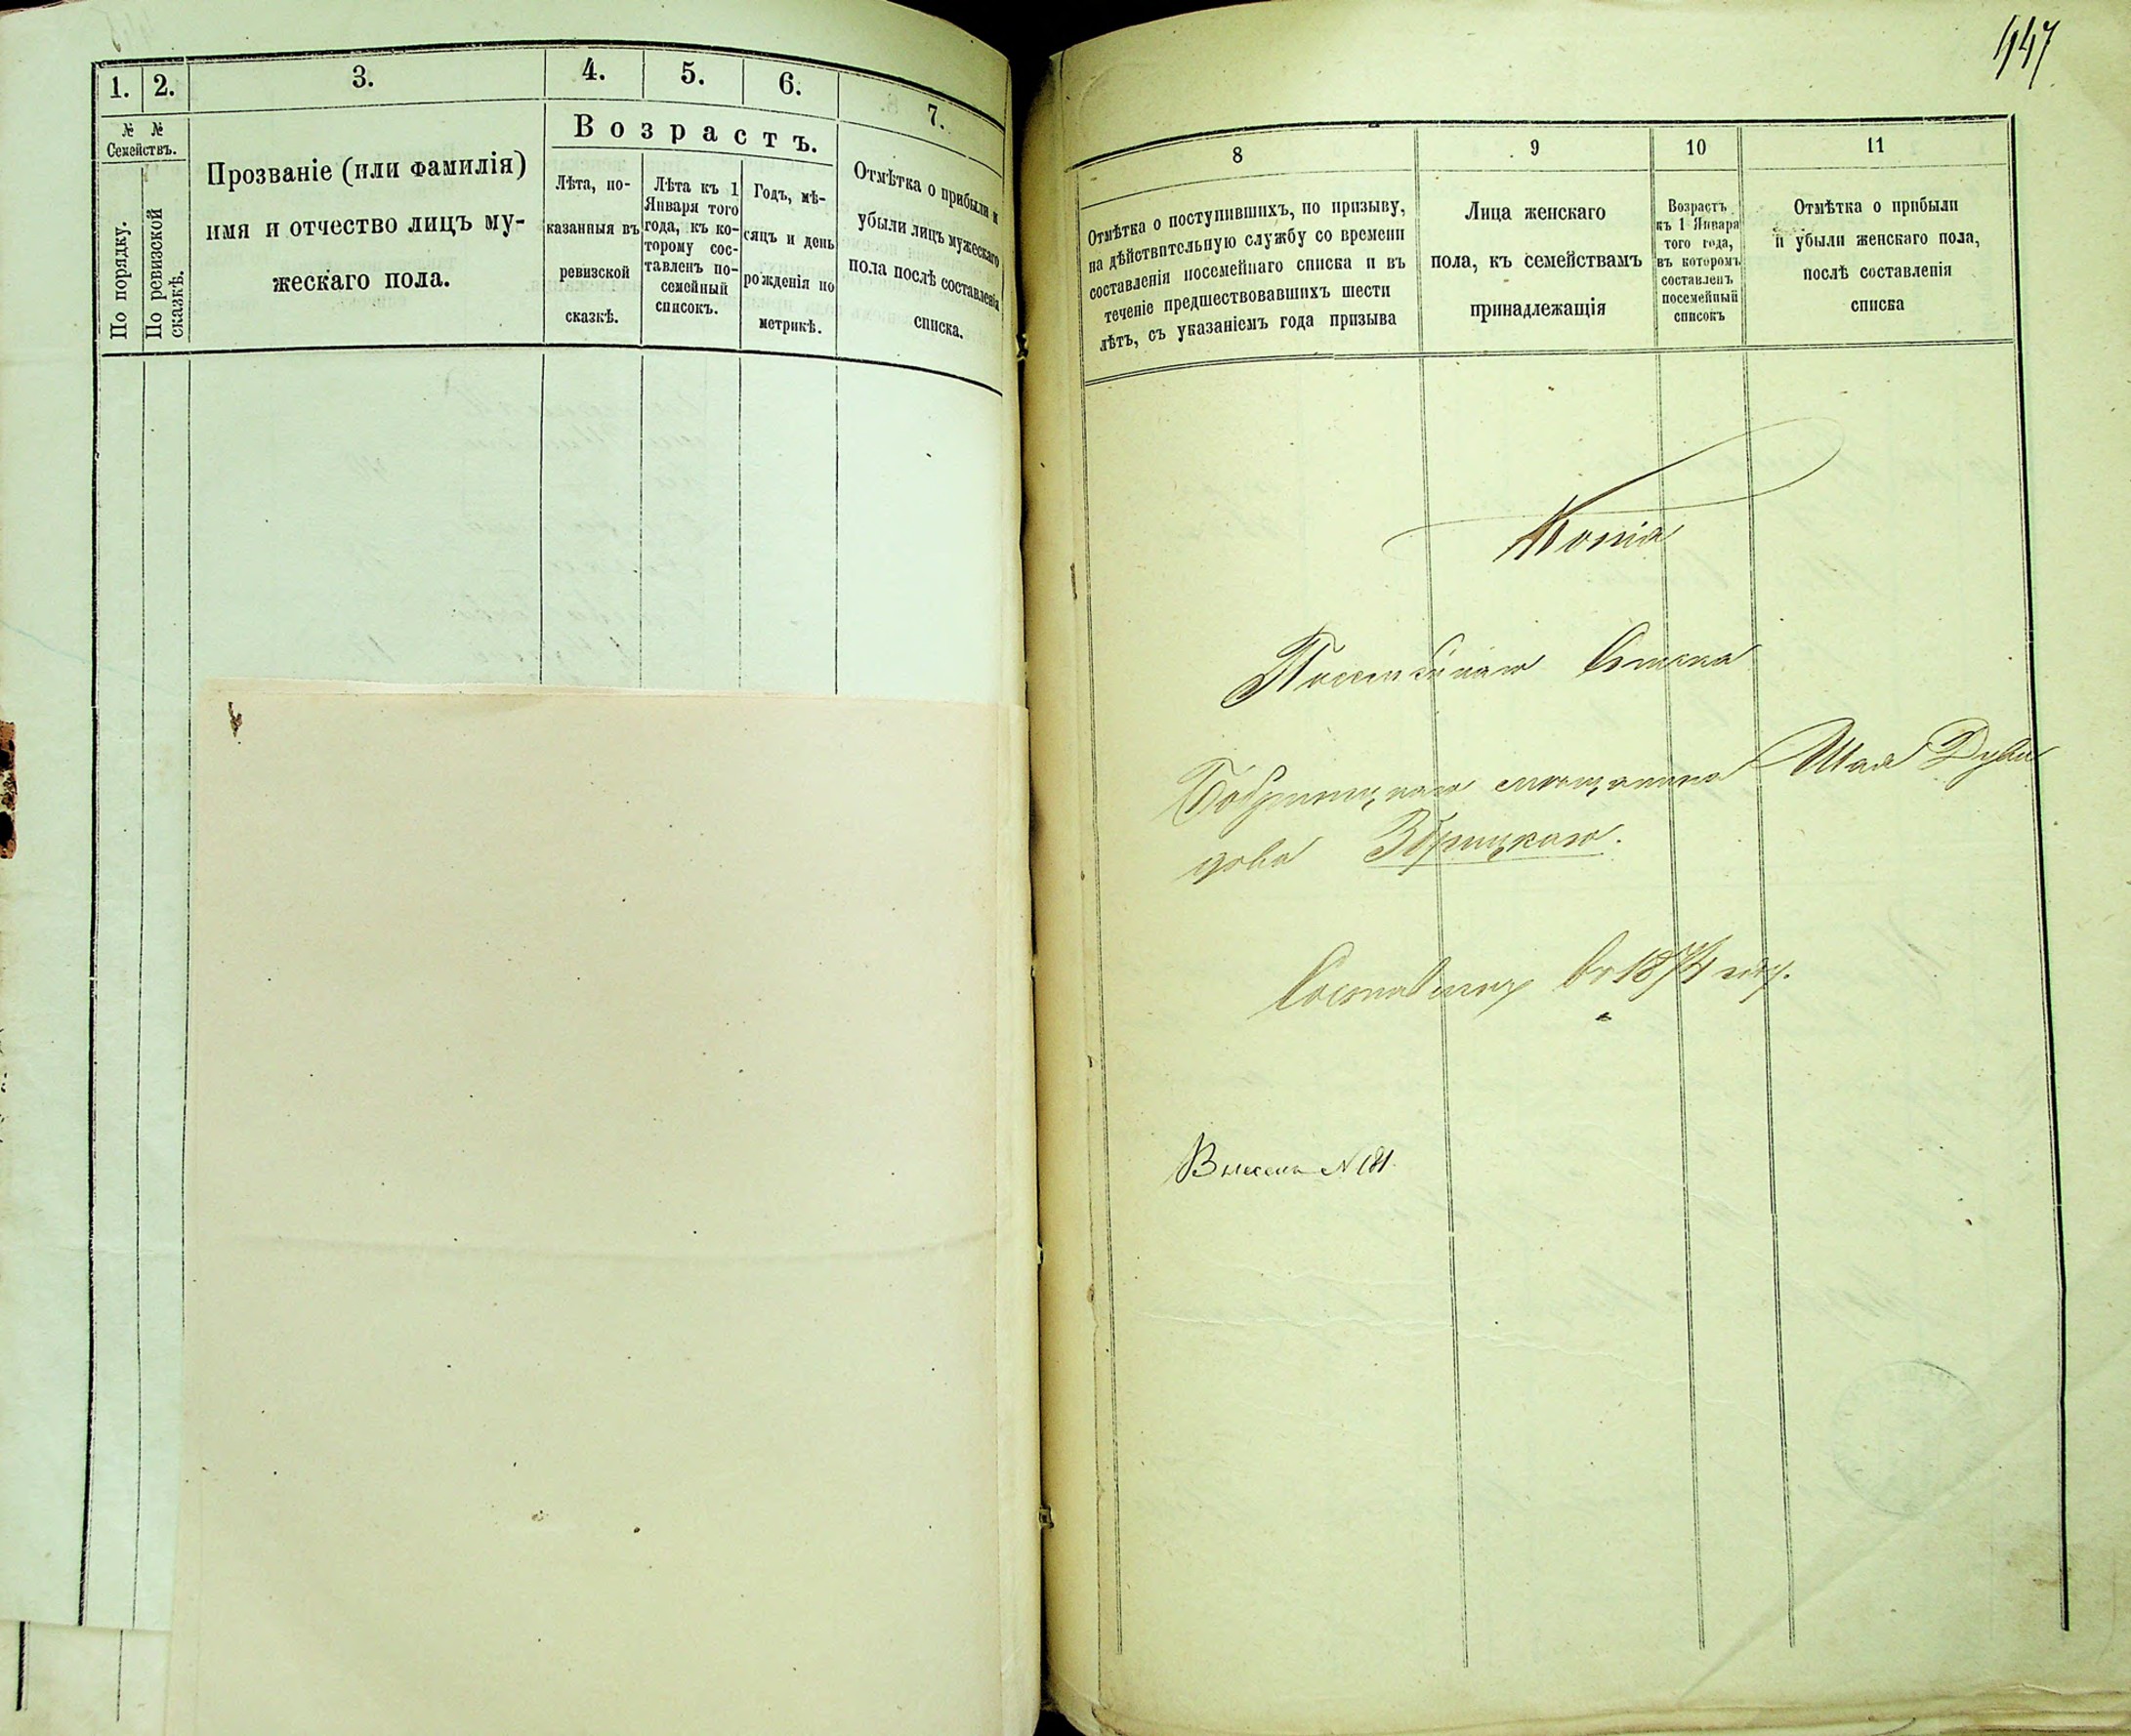 1. 2. 3. 4. 5. 6. 7.
№ №
Семействъ.
По порядку.
По ревизской
сказкѣ.
Прозваніе (или фамилія)
имя и отчество лицъ му-
жескаго пола.
Возрастъ.
Лѣта, по-
казанныя въ
ревизской
сказкѣ.
Лѣта къ 1
Января того
года, къ ко-
торому сос-
тавленъ по-
семейный
списокъ.
Годъ, мѣ-
сяцъ и день
рожденія по
метрикѣ.
Отмѣтка о прибыли и
убыли лицъ мужескаго
пола послѣ составленія
списка.
447
8 9 10 11
Отмѣтка о поступившихъ, по призыву,
на дѣйствительную службу со времени
составленія посемейнаго списка и въ
теченіе предшествовавшихъ шести
лѣтъ, съ указаніемъ года призыва
Лица женскаго
пола, къ семействамъ
принадлежащія
Возрастъ
къ 1 Января
того года,
въ которомъ
составленъ
посемейный
списокъ
Отмѣтка о прибыли
и убыли женскаго пола,
послѣ составленія
списка
Копія
Посемейнаго Списка
мѣщанина Шая Дуви
дова Збрицкаго.
Составленъ въ 1874 году.
№ 181.